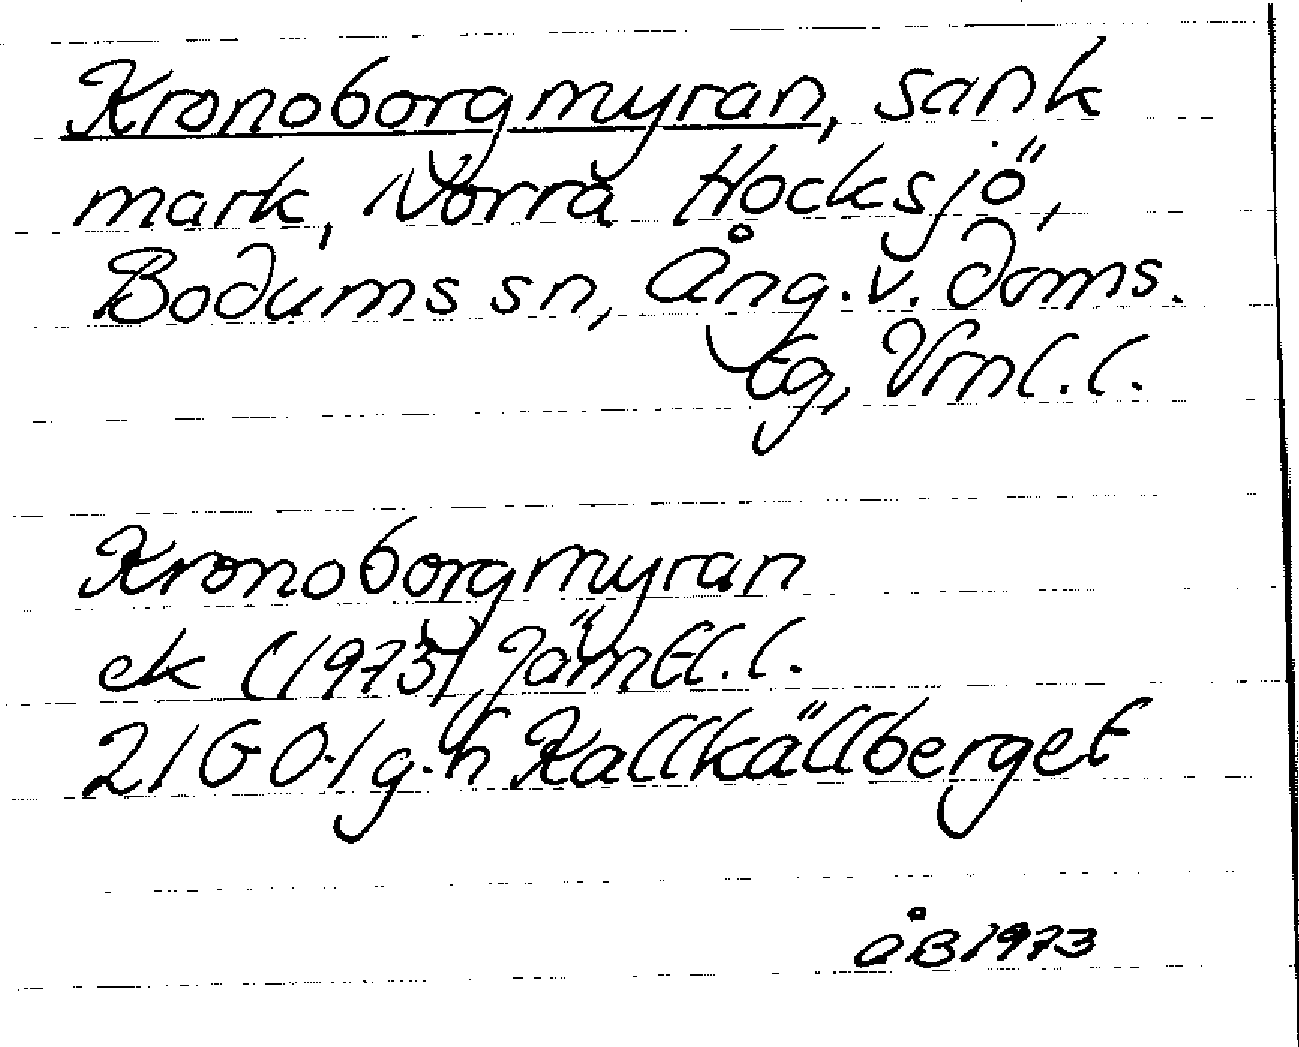 Kronoborgmyran, sank
mark, Norra Hocksjö,
Bodums sn, Ång. v. doms.
tg, Vrnl. l.
Kronoborgmyran
ek (1973) Jämtl. l.
21G 0-1 g-h Kallkällberget
ÅB 1973